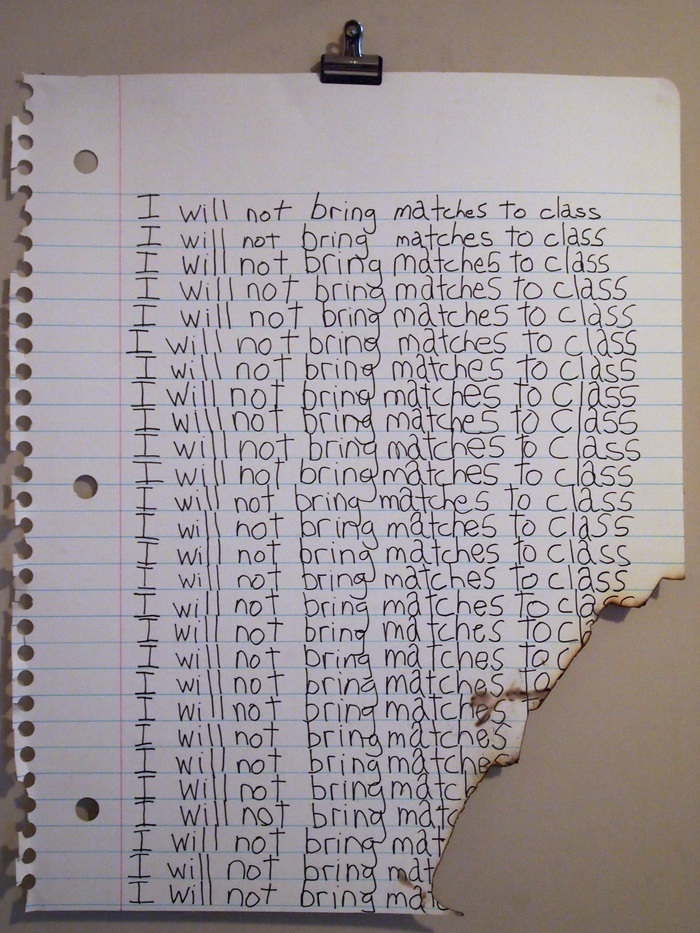 I will not bring matches to class
I will not bring matches to class
I will not bring matches to class
I will not bring matches to class
I will not bring matches to class
I will not bring matches to class
I will not bring matches to class
I will not bring matches to class
I will not bring matches to class
I will not bring matches to class
I will not bring matches to class
I will not bring matches to class
I will not bring matches to class
I will not bring matches to class
I will not bring matches to class
I will not bring matches to clas
I will not bring matches to c
I will not bring matches to c
I will not bring matches to
I will not bring matches
I will not bring matches
I will not bring matches
I will not bring matc
I will not bring matc
I will not bring mat
I will not bring mat
I will not bring mat